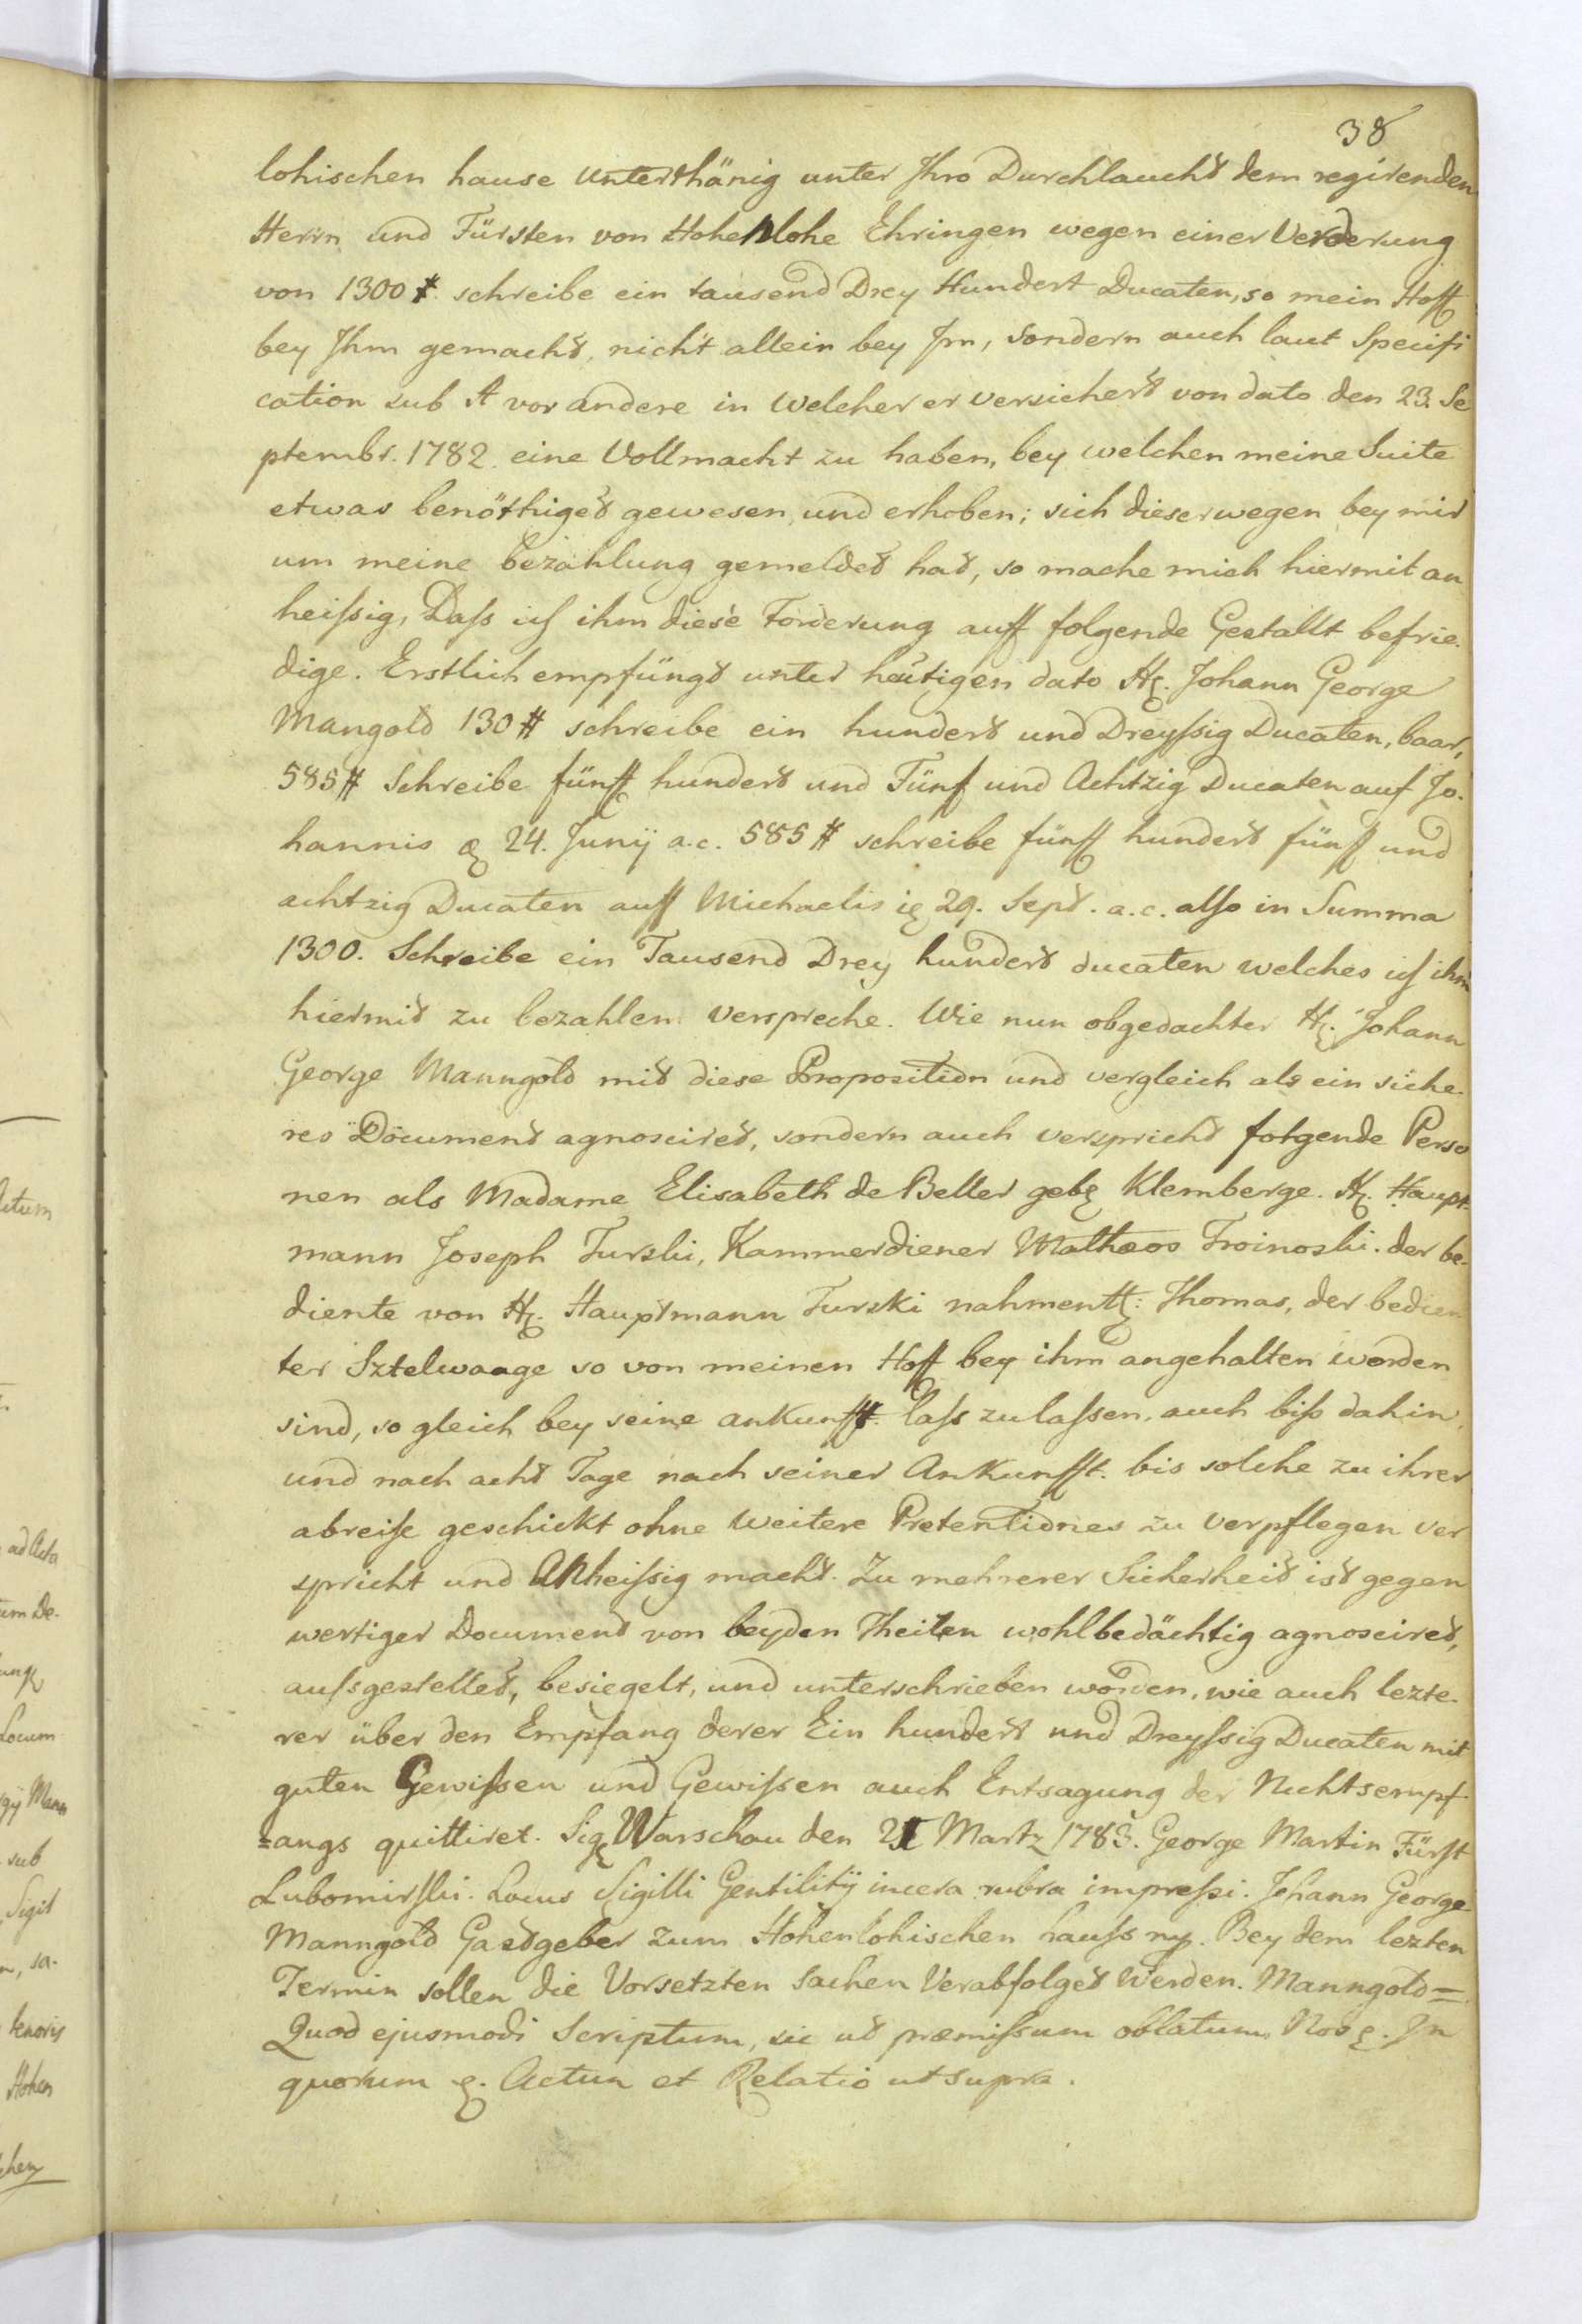 38
lohischen hause unterthänig unter Ihro Durchlaucht dem regirenden
Herrn und Fürsten von Hohenlohe Ehringen wegen einer Verderung
von 1300 # schreibe ein tausend Drey Hundert Ducaten, so mein Hoff
bey Ihm gemacht, nicht allein bey Im, sondern auch laut Specifi
cation sub A vor andere in welcher er versichert von dato den 23. Se
ptembr. 1782. eine Vollmacht zu haben, bey welchen meine Suite
etwas benöthiget gewesen, und erhoben; sich dieserwegen bey mir
um meine bezahlung gemeldet hat, so mache mich hiermit an
heißig, Daß ich ihm diese Forderung auff folgende Gestallt befrie.
dige. Erstlich empfüngt unter heütigen dato H. Johann George
Mangold 130 # schreibe ein hundert und Dreyßig Ducaten, baar,
585 # Schreibe fünff hundert und Fünf und Achtzig Ducaten auf Jo.
hannis 24. Junÿ a. c. 585 # schreibe fünff hundert fünf und
achtzig Ducaten auff Michaelis 29. Sept. a. c. also in Summa
1300. Schreibe ein Tausend Drey hundert ducaten welches ich ihm
hiermit zu bezahlen verspreche. Wie nun obgedachter H. Johann
George Manngold mit diese Proposition und vergleich als ein siche.
res Document agnosciret, sondern auch verspricht folgende Perso
nen als Madame Elisabeth de Beller geb Klemberge. H. Haupt.
mann Joseph Turski, Kammerdiener Mathæos Troinoski. der be.
diente von H. Hauptmann Turski nahmentl: Thomas, der bedien
ter Sztelwaage so von meinen Hoff bey ihm angehalten worden
sind, so gleich bey seine ankunfft laß zulaßen, auch biß dahin
und nach acht Tage nach seiner Ankunfft. bis solche zu ihrer
abreise geschickt ohne weitere Pretentiones zu verpflegen ver
spricht und Anheißig macht. Zu mehrerer Sicherheit ist gegen
wertiger Document von beyden Theilen wohlbedächtig agnosciret,
außgestellet, besiegelt, und unterschrieben worden, wie auch lezte.
rer über den Empfang derer Ein hundert und Dreyßig Ducaten mit
guten Gewißen und Gewißen auch Entsagung der Nichtsempf
=angs quittiret. Sig Warschau den Martz 1783. George Martin Fürst
Lubomirski. Locus Sigilli Gentilitÿ in cera rubra impreßi. Johann George
Manngold Gastgeber zum Hohenlohischen hauß mp. Bey dem lezten
Termin sollen die Vorsetzten sachen Verabfolget werden. Manngold=
Quod ejusmodi Scriptum, sic ut præmißum oblatum, Nos. In
quorum. Actum et Relatio ut supra.